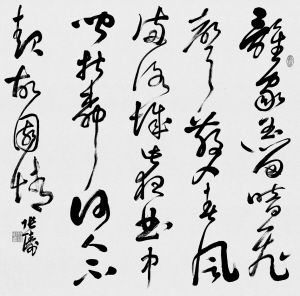 誰家玉笛暗飛
聲散入春風
滿洛城此夜曲中
聞折柳何人不
起故園情